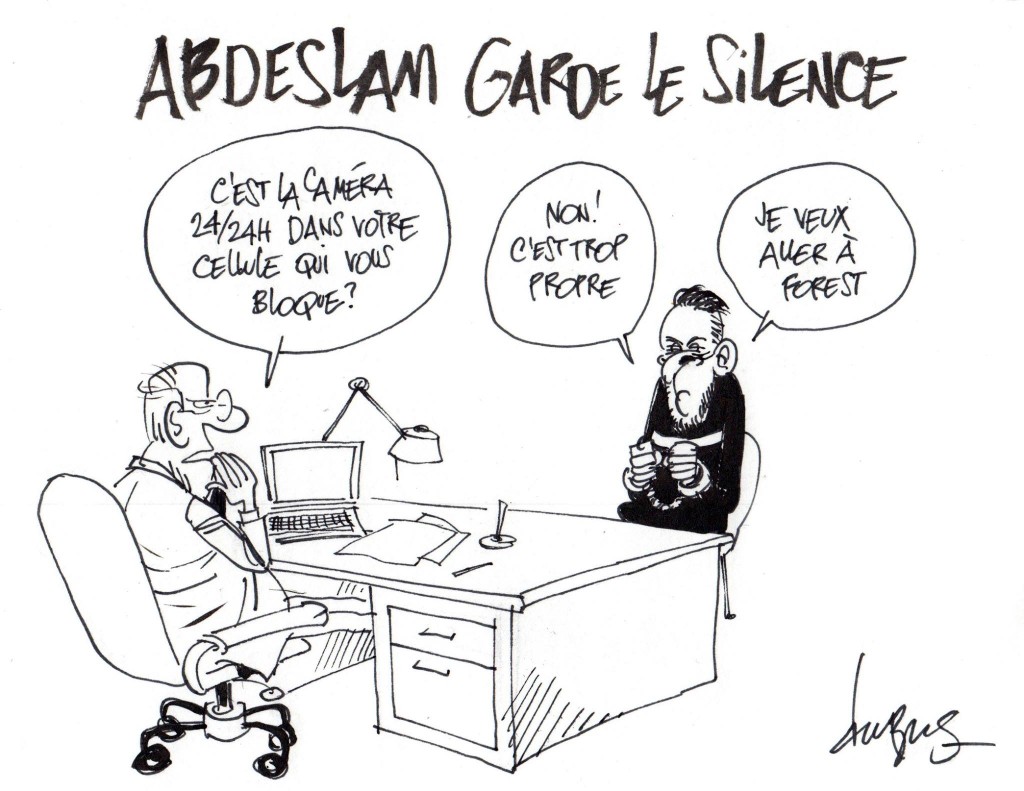 ABDESLAM GARDE LE SILENCE
C'EST LA CAMÉRA
24/24H DANS VOTRE
CELLULE QUI VOUS
BLOQUE?
NON!
C'EST TROP
PROPRE
JE VEUX
ALLER À
FOREST